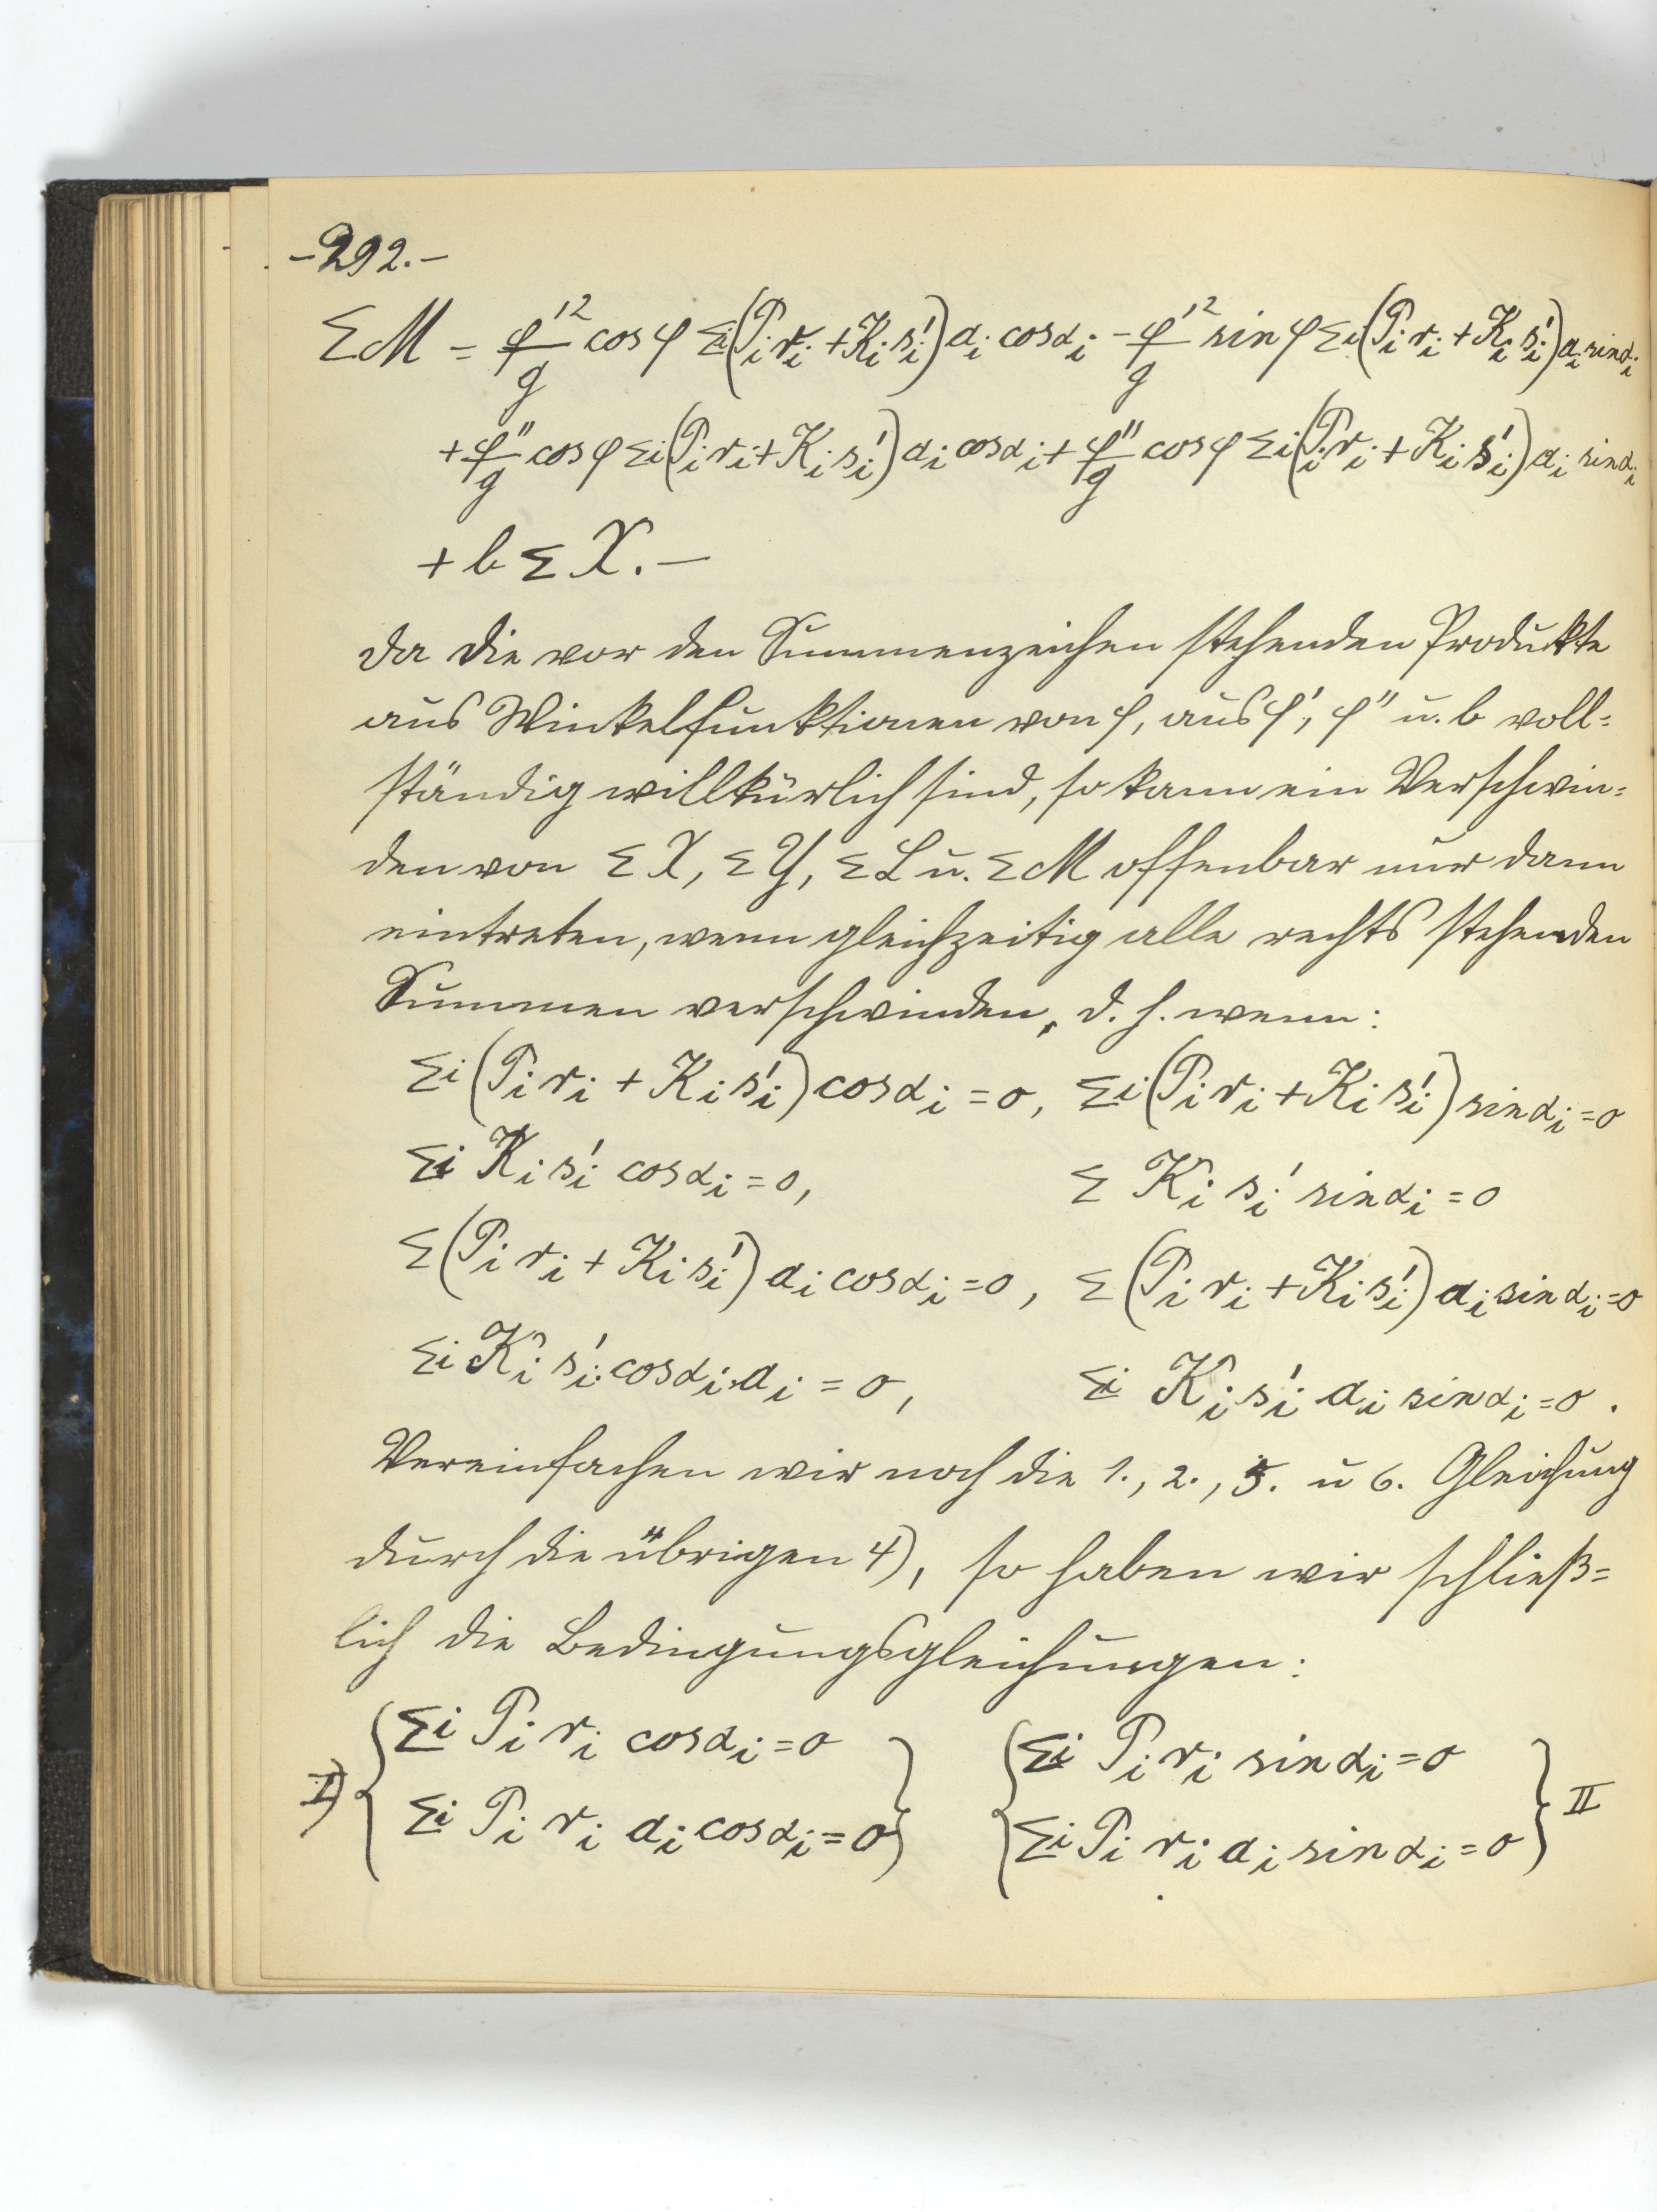 -292.-
ΣM = φ'²/g cos φ Σi(Pi ri + Ki si') ai cos αi - φ'²/g sin φ Σi(Pi ri + Ki si') ai sin αi
+ φ''/g cos φ Σi(Pi ri + Ki si') ai cos αi + φ''/g cos φ Σi(Pi ri + Ki si') ai sin αi
+ b Σ X. —
da die vor den Summenzeichen stehenden Produkte
aus Winkelfunktionen von φ, aus φ', φ'' u. b voll=
ständig willkürlich sind, so kann ein Verschwin=
den von Σ X, Σ Y, Σ L u. Σ M offenbar nur dann
eintreten, wenn gleichzeitig alle rechts stehenden
Summen verschwinden, d. h. wenn:
Σi (Pi ri + Ki si') cos αi = 0, Σi (Pi ri + Ki si') sin αi = 0
Σi Ki si' cos αi = 0, Σ Ki si' sin αi = 0
Σ (Pi ri + Ki si') ai cos αi = 0, Σ (Pi ri + Ki si') ai sin αi = 0
Σi Ki si' cos αi ai = 0, Σi Ki si' ai sin αi = 0.
Vereinfachen wir noch die 1., 2., 5. u 6. Gleichung
durch die übrigen 4), so haben wir schließ=
lich die Bedingungsgleichungen:
I) { Σi Pi ri cos αi = 0 } { Σi Pi ri sin αi = 0 } II
{ Σi Pi ri ai cos αi = 0 } { Σi Pi ri ai sin αi = 0 }